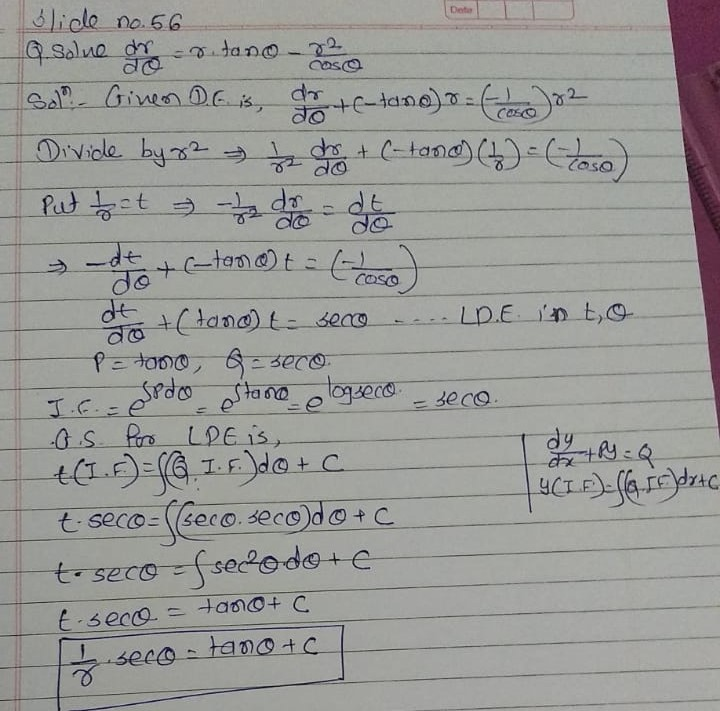 Date
Slide no.56
Q. Solve dr/dθ = r.tanθ - r²/cosθ
Solⁿ:- Given D.E. is, dr/dθ + (-tanθ)r = (-1/cosθ)r²
Divide by r² ⇒ 1/r² dr/dθ + (-tanθ)(1/r) = (-1/cosθ)
Put 1/r = t ⇒ -1/r² dr/dθ = dt/dθ
⇒ -dt/dθ + (-tanθ)t = (-1/cosθ)
dt/dθ + (tanθ)t = secθ ..... L.D.E. in t,θ
P = tanθ, Q = secθ.
I.F. = e^∫Pdθ = e^∫tanθ = e^logsecθ = secθ.
G.S. for LDE is,
t(I.F) = ∫(Q.I.F.)dθ + C
dy/dx + Py = Q
y(I.F) = ∫(Q.IF)dx+C
t.secθ = ∫(secθ.secθ)dθ + C
t.secθ = ∫sec²θdθ + C
t.secθ = tanθ + C
1/r.secθ = tanθ + C